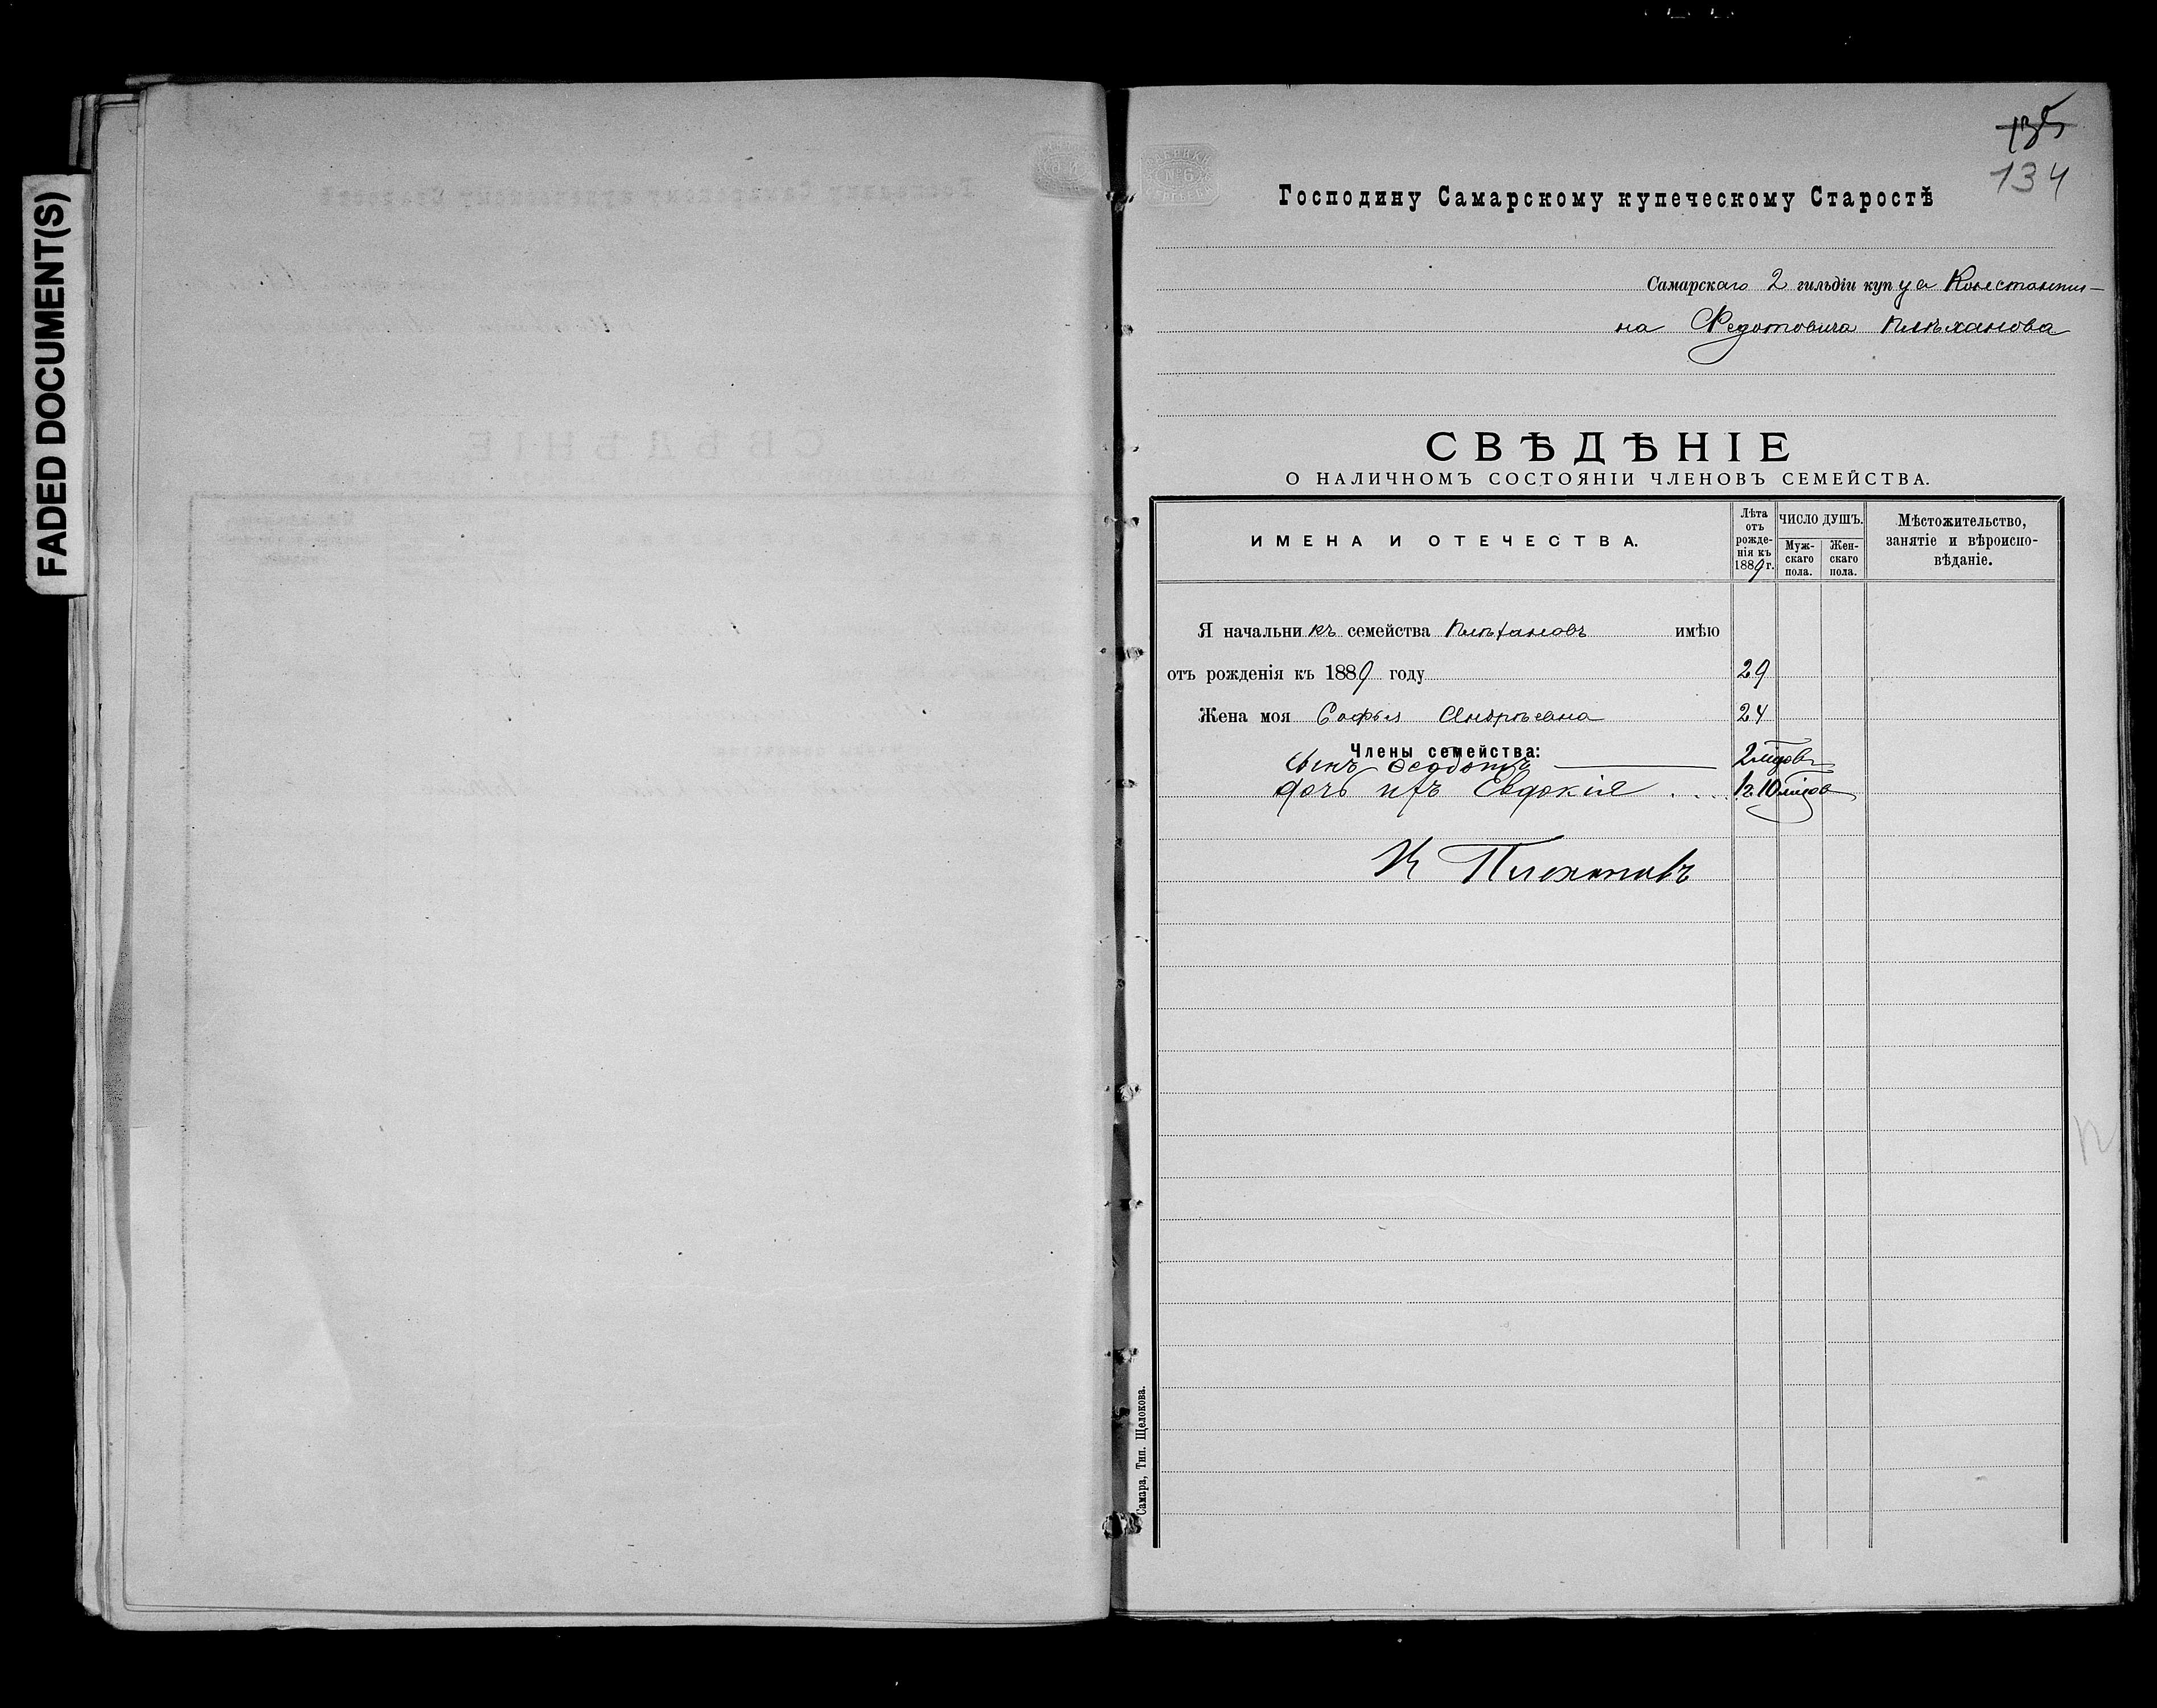 FADED DOCUMENT(S)
135
134
Господину Самарскому купеческому Старостѣ
Самарскаго 2 гильдіи купца Константи-
на Федотовича Плѣханова
СВѢДѢНІЕ
О НАЛИЧНОМЪ СОСТОЯНІИ ЧЛЕНОВЪ СЕМЕЙСТВА.
ИМЕНА И ОТЕЧЕСТВА.
Лѣта отъ рожде-нія къ 1889 г.
ЧИСЛО ДУШЪ.
Муж-скаго пола.
Жен-скаго пола.
Мѣстожительство, занятіе и вѣроиспо-вѣданіе.
Я начальникъ семейства Плѣхановъ имѣю
отъ рожденія къ 1889 году 29
Жена моя Софья Андрѣевна 24
Члены семейства:
сынъ Ѳедотъ 2
дочь ихъ Евдокія 1 г. 10
К Плехановъ
Самара, Тип. Щелокова.